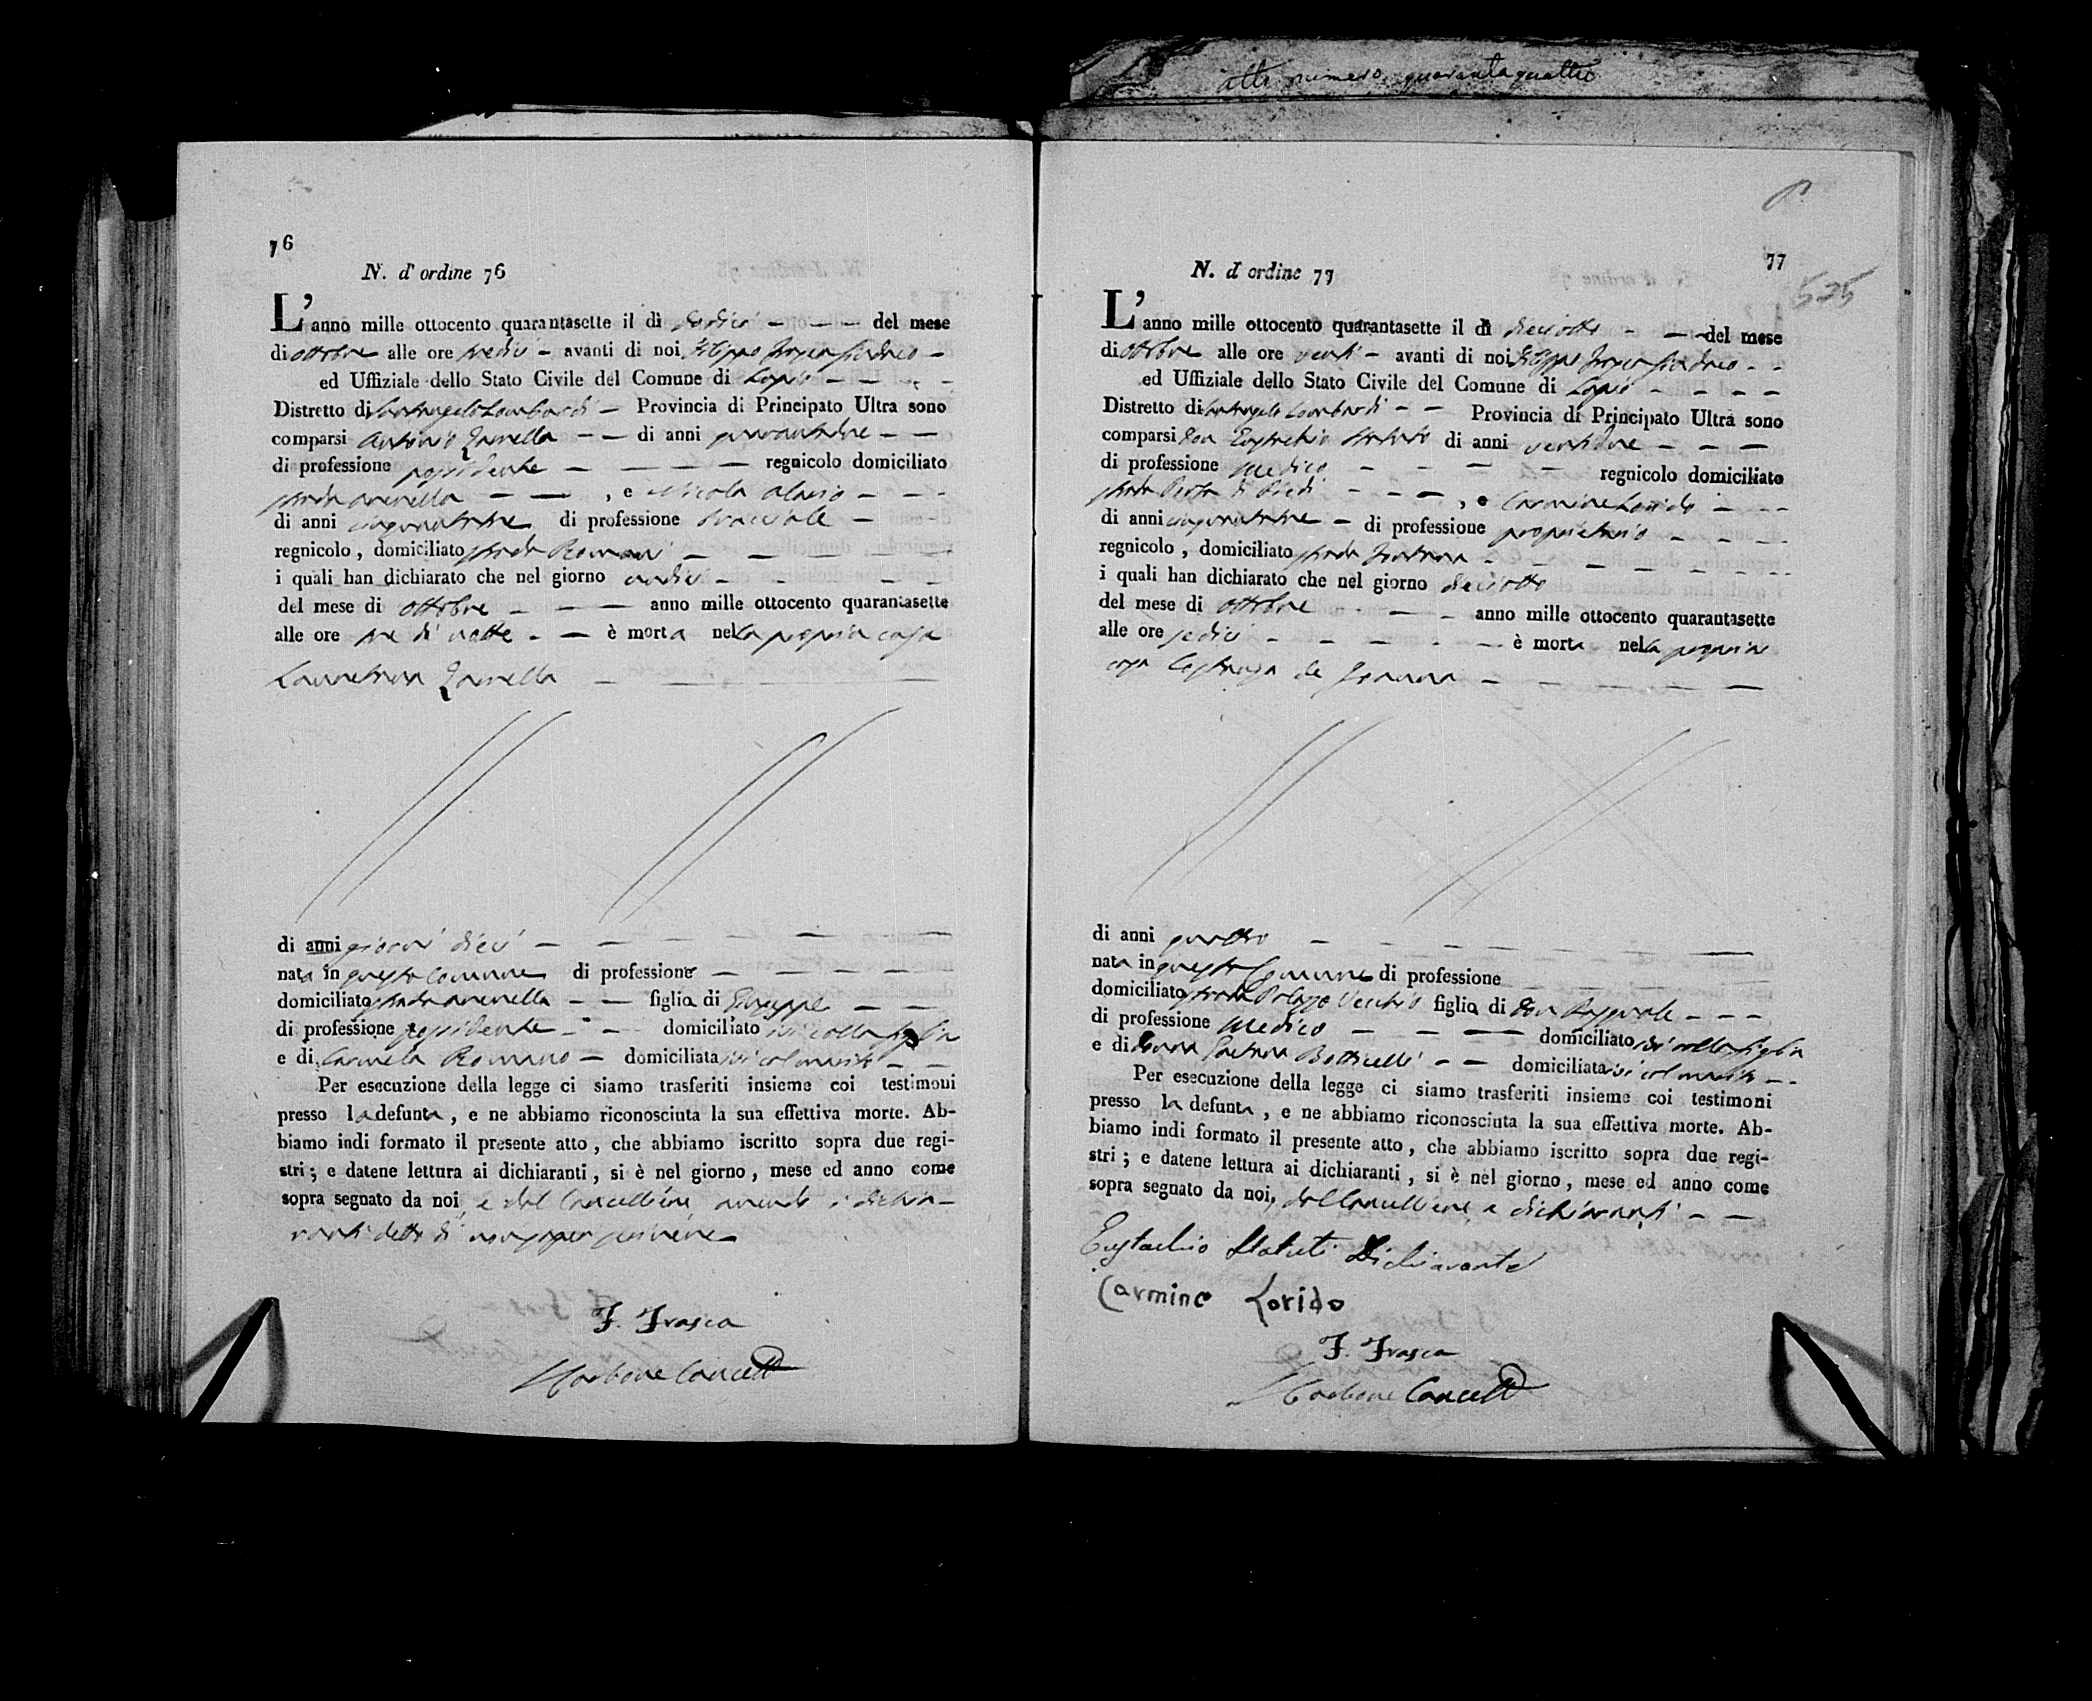 atto numero quarantaquattro
76
N. d'ordine 76
L'anno mille ottocento quarantasette il dì dodici del mese
di ottobre alle ore tredici avanti di noi Filippo Frasca Sindaco
ed Uffiziale dello Stato Civile del Comune di Lapio
Distretto di Santangelo Lombardi Provincia di Principato Ultra sono
comparsi Antonio Zarrella di anni quarantadue
di professione possidente regnicolo domiciliato
strada , e Nicola
di anni cinquantatre di professione bracciale
regnicolo, domiciliato strada Romani
i quali han dichiarato che nel giorno undici
del mese di ottobre anno mille ottocento quarantasette
alle ore tre di notte è morta nella propria casa
Zarrella
di anni giorni dieci
nata in questo Comune di professione
domiciliato strada figlia di Giuseppe
di professione possidente domiciliato ivi colla figlia
e di Carmela Romano domiciliata ivi col marito
Per esecuzione della legge ci siamo trasferiti insieme coi testimoni
presso la defunta, e ne abbiamo riconosciuta la sua effettiva morte. Ab-
biamo indi formato il presente atto, che abbiamo iscritto sopra due regi-
stri; e datene lettura ai dichiaranti, si è nel giorno, mese ed anno come
sopra segnato da noi, e dal Cancelliere avendo i dichia-
ranti detto di non saper scrivere
F. Frasca
Carbone Cancell
77
525
N. d'ordine 77
L'anno mille ottocento quarantasette il dì dieciotto del mese
di ottobre alle ore venti avanti di noi Filippo Frasca Sindaco
ed Uffiziale dello Stato Civile del Comune di Lapio
Distretto di Santangelo Lombardi Provincia di Principato Ultra sono
comparsi Don Eustachio Statuto di anni ventidue
di professione Medico regnicolo domiciliato
strada Piedi , e Carmine Lorido
di anni cinquantatre di professione proprietario
regnicolo, domiciliato strada Fontana
i quali han dichiarato che nel giorno dieciotto
del mese di ottobre anno mille ottocento quarantasette
alle ore sedici è morta nella propria
casa Costanza de Joanna
di anni quattro
nata in questo Comune di professione
domiciliato strada Palazzo Vecchio figlia di Don Pasquale
di professione Medico domiciliato ivi colla figlia
e di Donna Gaetana Botticelli domiciliata ivi col marito
Per esecuzione della legge ci siamo trasferiti insieme coi testimoni
presso la defunta, e ne abbiamo riconosciuta la sua effettiva morte. Ab-
biamo indi formato il presente atto, che abbiamo iscritto sopra due regi-
stri; e datene lettura ai dichiaranti, si è nel giorno, mese ed anno come
sopra segnato da noi, dal Cancelliere, e dichiaranti
Eustachio Statuti Dichiarante
Carmine Lorido
F. Frasca
Carbone Cancell